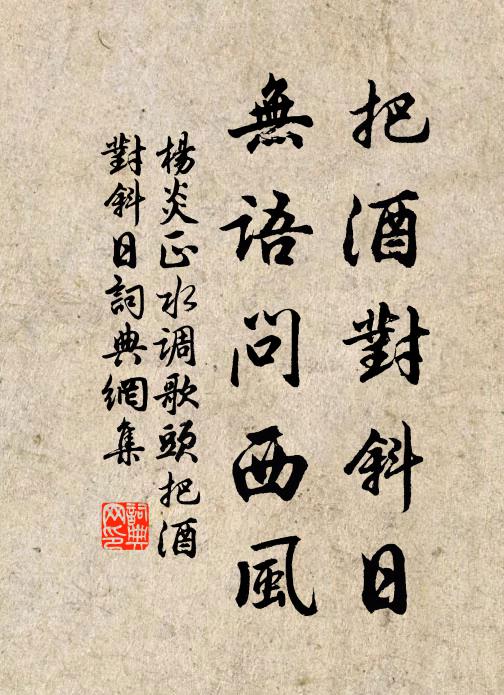 把酒對斜日
無語問西風
楊炎正水调歌頭把酒
對斜日詞典網集
詞典
网印